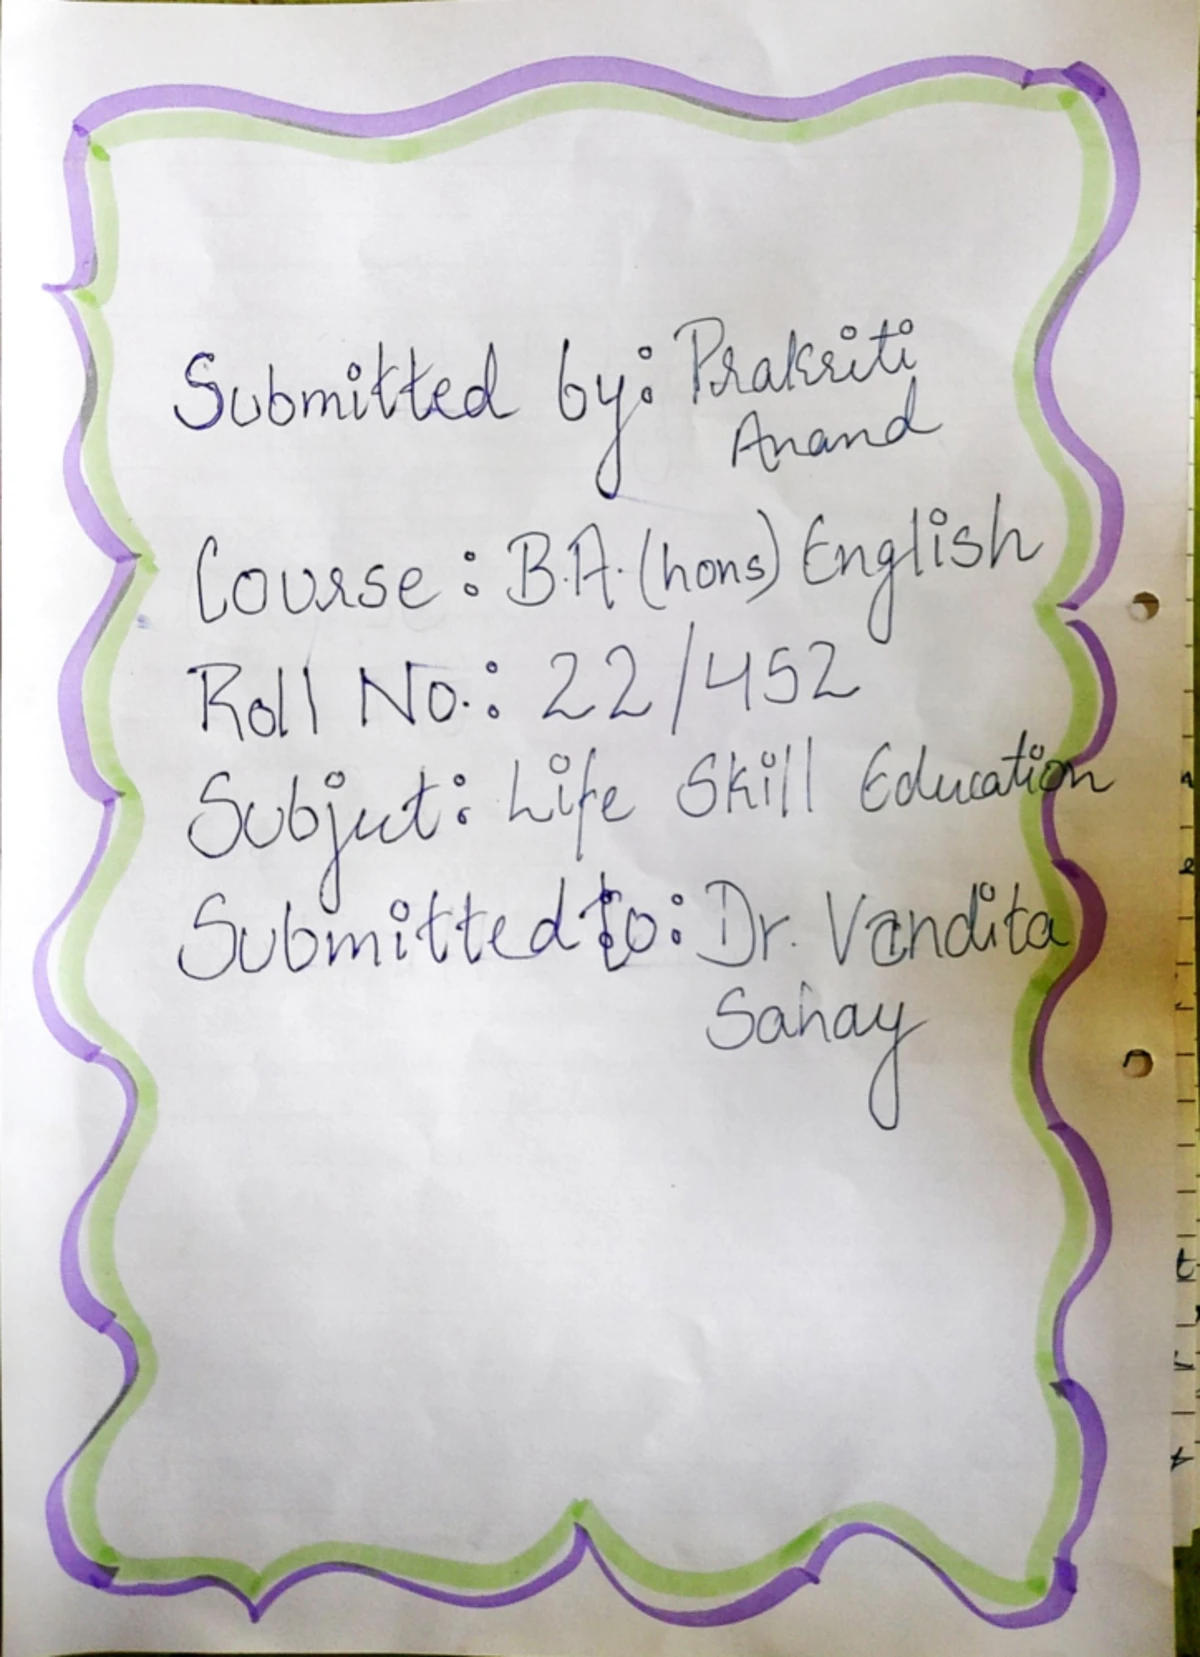 Submitted by: Prakriti
Anand
Course: B.A. (hons) English
Roll No.: 22/452
Subject: Life Skill Education
Submitted to: Dr. Vandita
Sahay